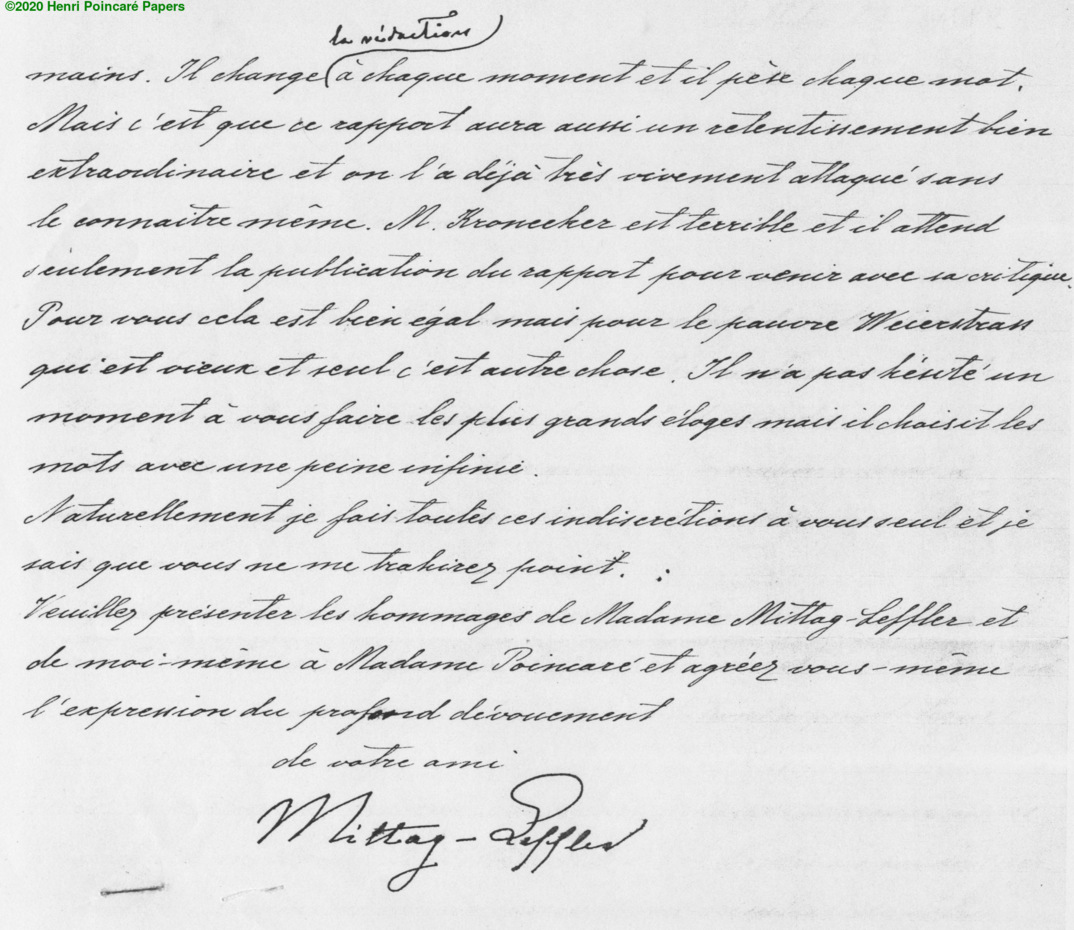 ©2020 Henri Poincaré Papers
la rédaction
mains. Il change à chaque moment et il pèse chaque mot.
Mais c'est que ce rapport aura aussi un retentissement bien
extraordinaire et on l'a déjà très vivement attaqué sans
le connaître même. M. Kronecker est terrible et il attend
seulement la publication du rapport pour venir avec sa critique.
Pour vous cela est bien égal mais pour le pauvre Weierstrass
qui est vieux et seul c'est autre chose. Il n'a pas hésité un
moment à vous faire les plus grands éloges mais il choisit les
mots avec une peine infinie.
Naturellement je fais toutes ces indiscrétions à vous seul et je
sais que vous ne me trahirez point.
Veuillez présenter les hommages de Madame Mittag-Leffler et
de moi-même à Madame Poincaré et agréez vous-même
l'expression du profond dévouement
de votre ami
Mittag-Leffler